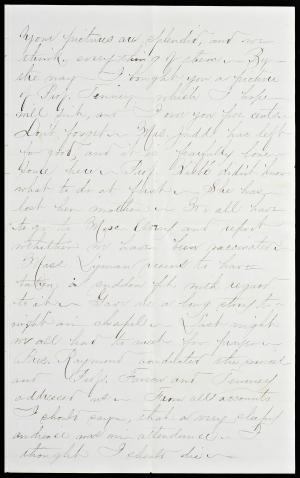 Your pictures are splendid, and we
think everything of them - By
the way - I bought you a picture
of Prof. Tenney - which I hope
will suit, and I owe you five cents -
Don't forget - Mrs. Judd has left
for good, and it is fearfully lonely
here - Prof. didn't know
what to do at first - She has
lost her mother - We all have
to go to Miss and report
whether we have been vaccinated
Miss Lyman seems to have
taken a sudden with regard
to it - Gave us a long string to-
night in chapel - Last night
we all had to meet for prayer -
Mrs. Raymond conducted the services
and Prof. Farrar and Tenney
addressed us - From all accounts
I should say, that a very sleepy
audience was in attendance - I
thought I should die -